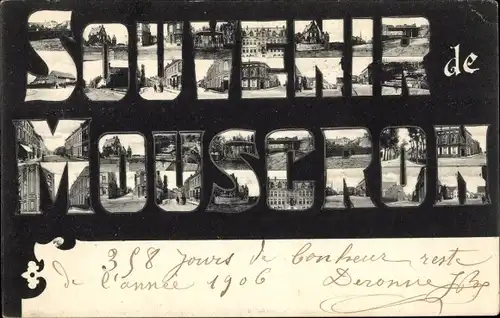 SOUVENIR de
MOUSCRON
358 jours de bonheur reste
de l'année 1906 Deronne